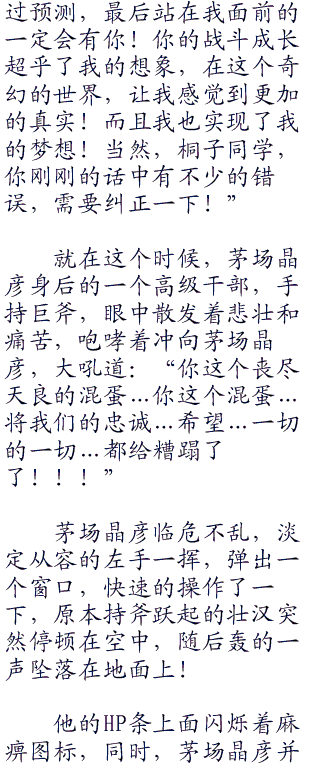 过预测，最后站在我面前的
一定会有你！你的战斗成长
超乎了我的想象，在这个奇
幻的世界，让我感觉到更加
的真实！而且我也实现了我
的梦想！当然，桐子同学，
你刚刚的话中有不少的错
误，需要纠正一下！”
就在这个时候，茅场晶
彦身后的一个高级干部，手
持巨斧，眼中散发着悲壮和
痛苦，咆哮着冲向茅场晶
彦，大吼道：“你这个丧尽
天良的混蛋…你这个混蛋…
将我们的忠诚…希望…一切
的一切…都给糟蹋了
了！！！”
茅场晶彦临危不乱，淡
定从容的左手一挥，弹出一
个窗口，快速的操作了一
下，原本持斧跃起的壮汉突
然停顿在空中，随后轰的一
声坠落在地面上！
他的HP条上面闪烁着麻
痹图标，同时，茅场晶彦并